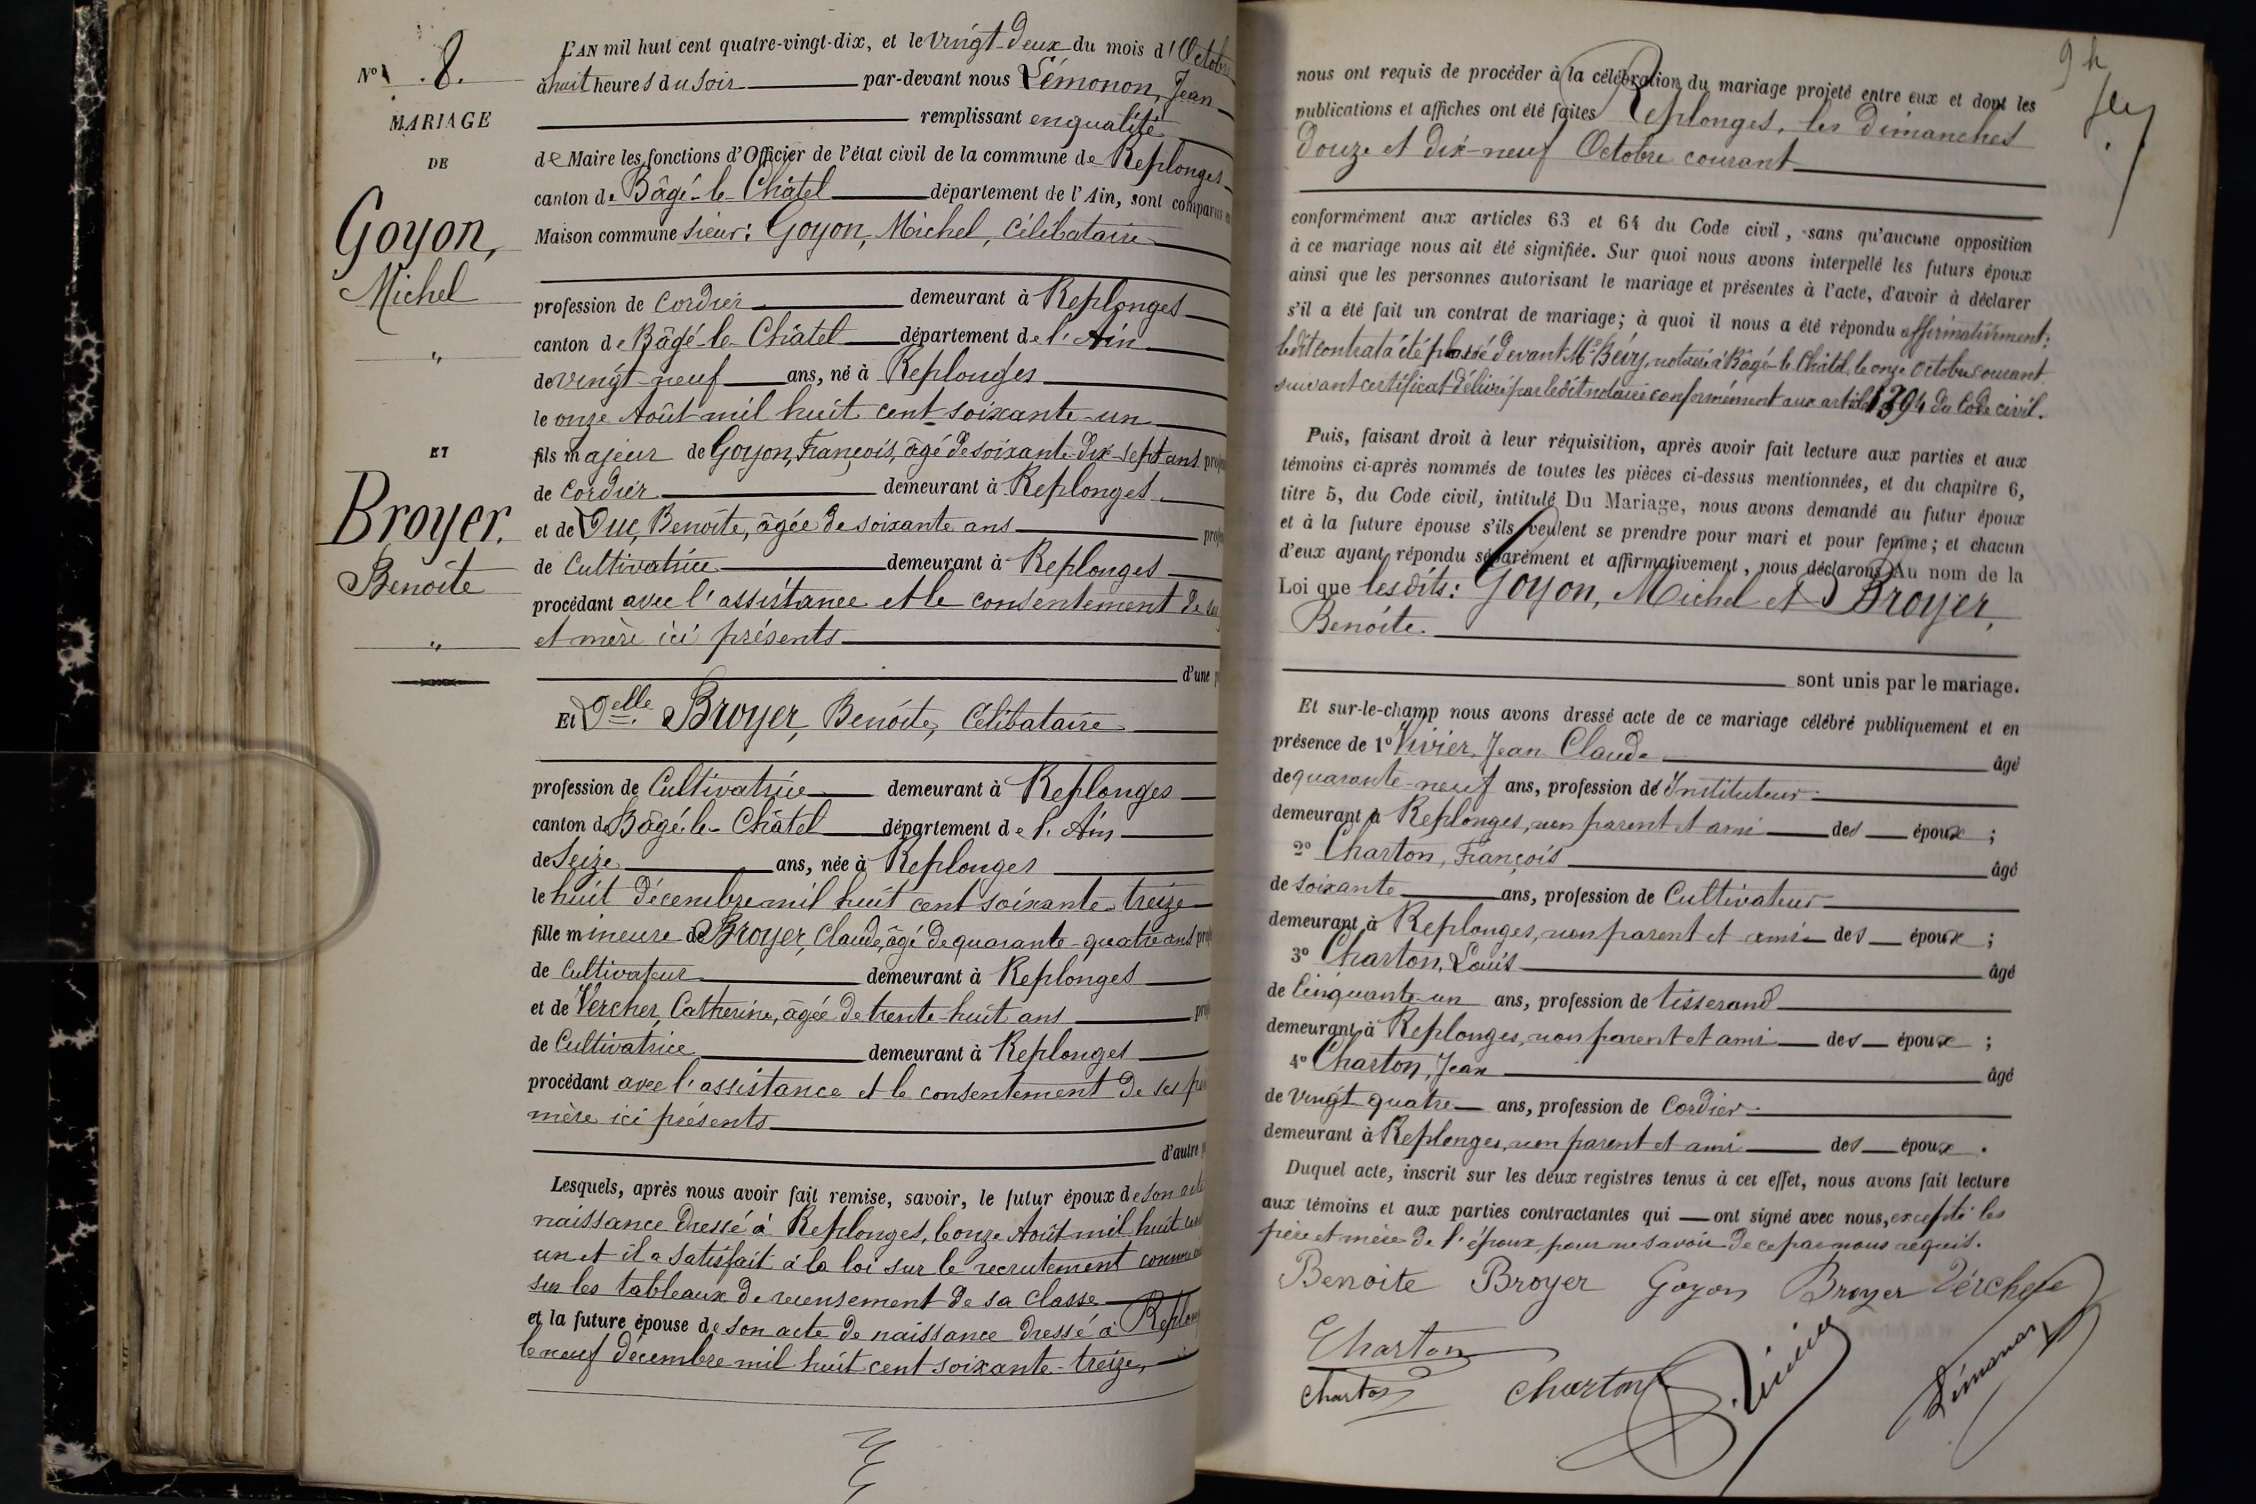 N° 8.
MARIAGE
DE
Goyon,
Michel
"
ET
Broyer.
Benoîte
"
L'AN mil huit cent quatre-vingt-dix, et le vingt-deux du mois d'Octobre
à huit heures du soir par-devant nous Lémonon, Jean
remplissant en qualité
de Maire les fonctions d'Officier de l'état civil de la commune de Replonges
canton de Bâgé-le-Châtel département de l'Ain, sont comparus en
Maison commune sieur: Goyon, Michel, célibataire
profession de cordier demeurant à Replonges
canton de Bâgé-le-Châtel département de l'Ain
de vingt-neuf ans, né à Replonges
le onze Août mil huit cent soixante-un
fils majeur de Goyon, François, âgé de soixante-dix-sept ans prof
de cordier demeurant à Replonges
et de Duc, Benoîte, âgée de soixante ans prof
de Cultivatrice demeurant à Replonges
procédant avec l'assistance et le consentement de ses
et mère ici présents
d'une p
Et Delle Broyer, Benoîte, Célibataire
profession de Cultivatrice demeurant à Replonges
canton de Bâgé-le-Châtel département de l'Ain
de seize ans, née à Replonges
le huit décembre mil huit cent soixante-treize
fille mineure de Broyer, Claude, âgé de quarante-quatre ans prof
de Cultivateur demeurant à Replonges
et de Vercher, Catherine, âgée de trente-huit ans prof
de Cultivatrice demeurant à Replonges
procédant avec l'assistance et le consentement de ses père
mère ici présents
d'autre p
Lesquels, après nous avoir fait remise, savoir, le futur époux de son acte
naissance dressé à Replonges, le onze Août mil huit cent
un et il a satisfait à la loi sur le recrutement comme
sur les tableaux de recensement de sa classe
et la future épouse de son acte de naissance dressé à Replonges
le neuf décembre mil huit cent soixante-treize,
9h
nous ont requis de procéder à la célébration du mariage projeté entre eux et dont les
publications et affiches ont été faites Replonges, les dimanches
douze et dix-neuf Octobre courant
conformément aux articles 63 et 64 du Code civil, sans qu'aucune opposition
à ce mariage nous ait été signifiée. Sur quoi nous avons interpellé les futurs époux
ainsi que les personnes autorisant le mariage et présentes à l'acte, d'avoir à déclarer
s'il a été fait un contrat de mariage; à quoi il nous a été répondu affirmativement;
ledit contrat a été passé devant Me Béry, notaire à Bâgé-le-Châtel, le onze Octobre courant
suivant certificat délivré par ledit notaire conformément aux article 1394 du Code civil.
Puis, faisant droit à leur réquisition, après avoir fait lecture aux parties et aux
témoins ci-après nommés de toutes les pièces ci-dessus mentionnées, et du chapitre 6,
titre 5, du Code civil, intitulé Du Mariage, nous avons demandé au futur époux
et à la future épouse s'ils veulent se prendre pour mari et pour femme; et chacun
d'eux ayant répondu séparément et affirmativement, nous déclarons Au nom de la
Loi que lesdits: Goyon, Michel et Broyer,
Benoîte.
sont unis par le mariage.
Et sur-le-champ nous avons dressé acte de ce mariage célébré publiquement et en
présence de 1° Vivier, Jean Claude âgé
de quarante-neuf ans, profession de Instituteur
demeurant à Replonges, non parent et ami des époux;
2° Charton, François âgé
de soixante ans, profession de Cultivateur
demeurant à Replonges, non parent et ami des époux;
3° Charton, Louis âgé
de Cinquante-un ans, profession de tisserand
demeurant à Replonges, non parent et ami des époux;
4° Charton, Jean âgé
de vingt-quatre ans, profession de Cordier
demeurant à Replonges, non parent et ami des époux.
Duquel acte, inscrit sur les deux registres tenus à cet effet, nous avons fait lecture
aux témoins et aux parties contractantes qui ont signé avec nous, excepté les
père et mère de l'époux pour ne savoir de ce par nous requis.
Benoite Broyer Goyon Broyer Vérchere
Charton
Charton Charton Vivier Lémonon